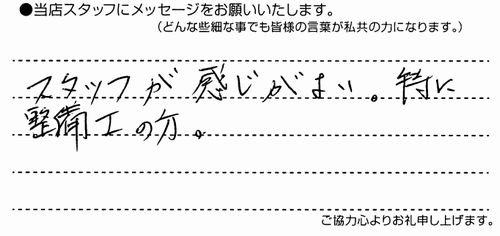 ●当店スタッフにメッセージをお願いいたします。
（どんな些細な事でも皆様の言葉が私共の力になります。）
スタッフが感じがよい。特に
整備工の方。
ご協力心よりお礼申し上げます。